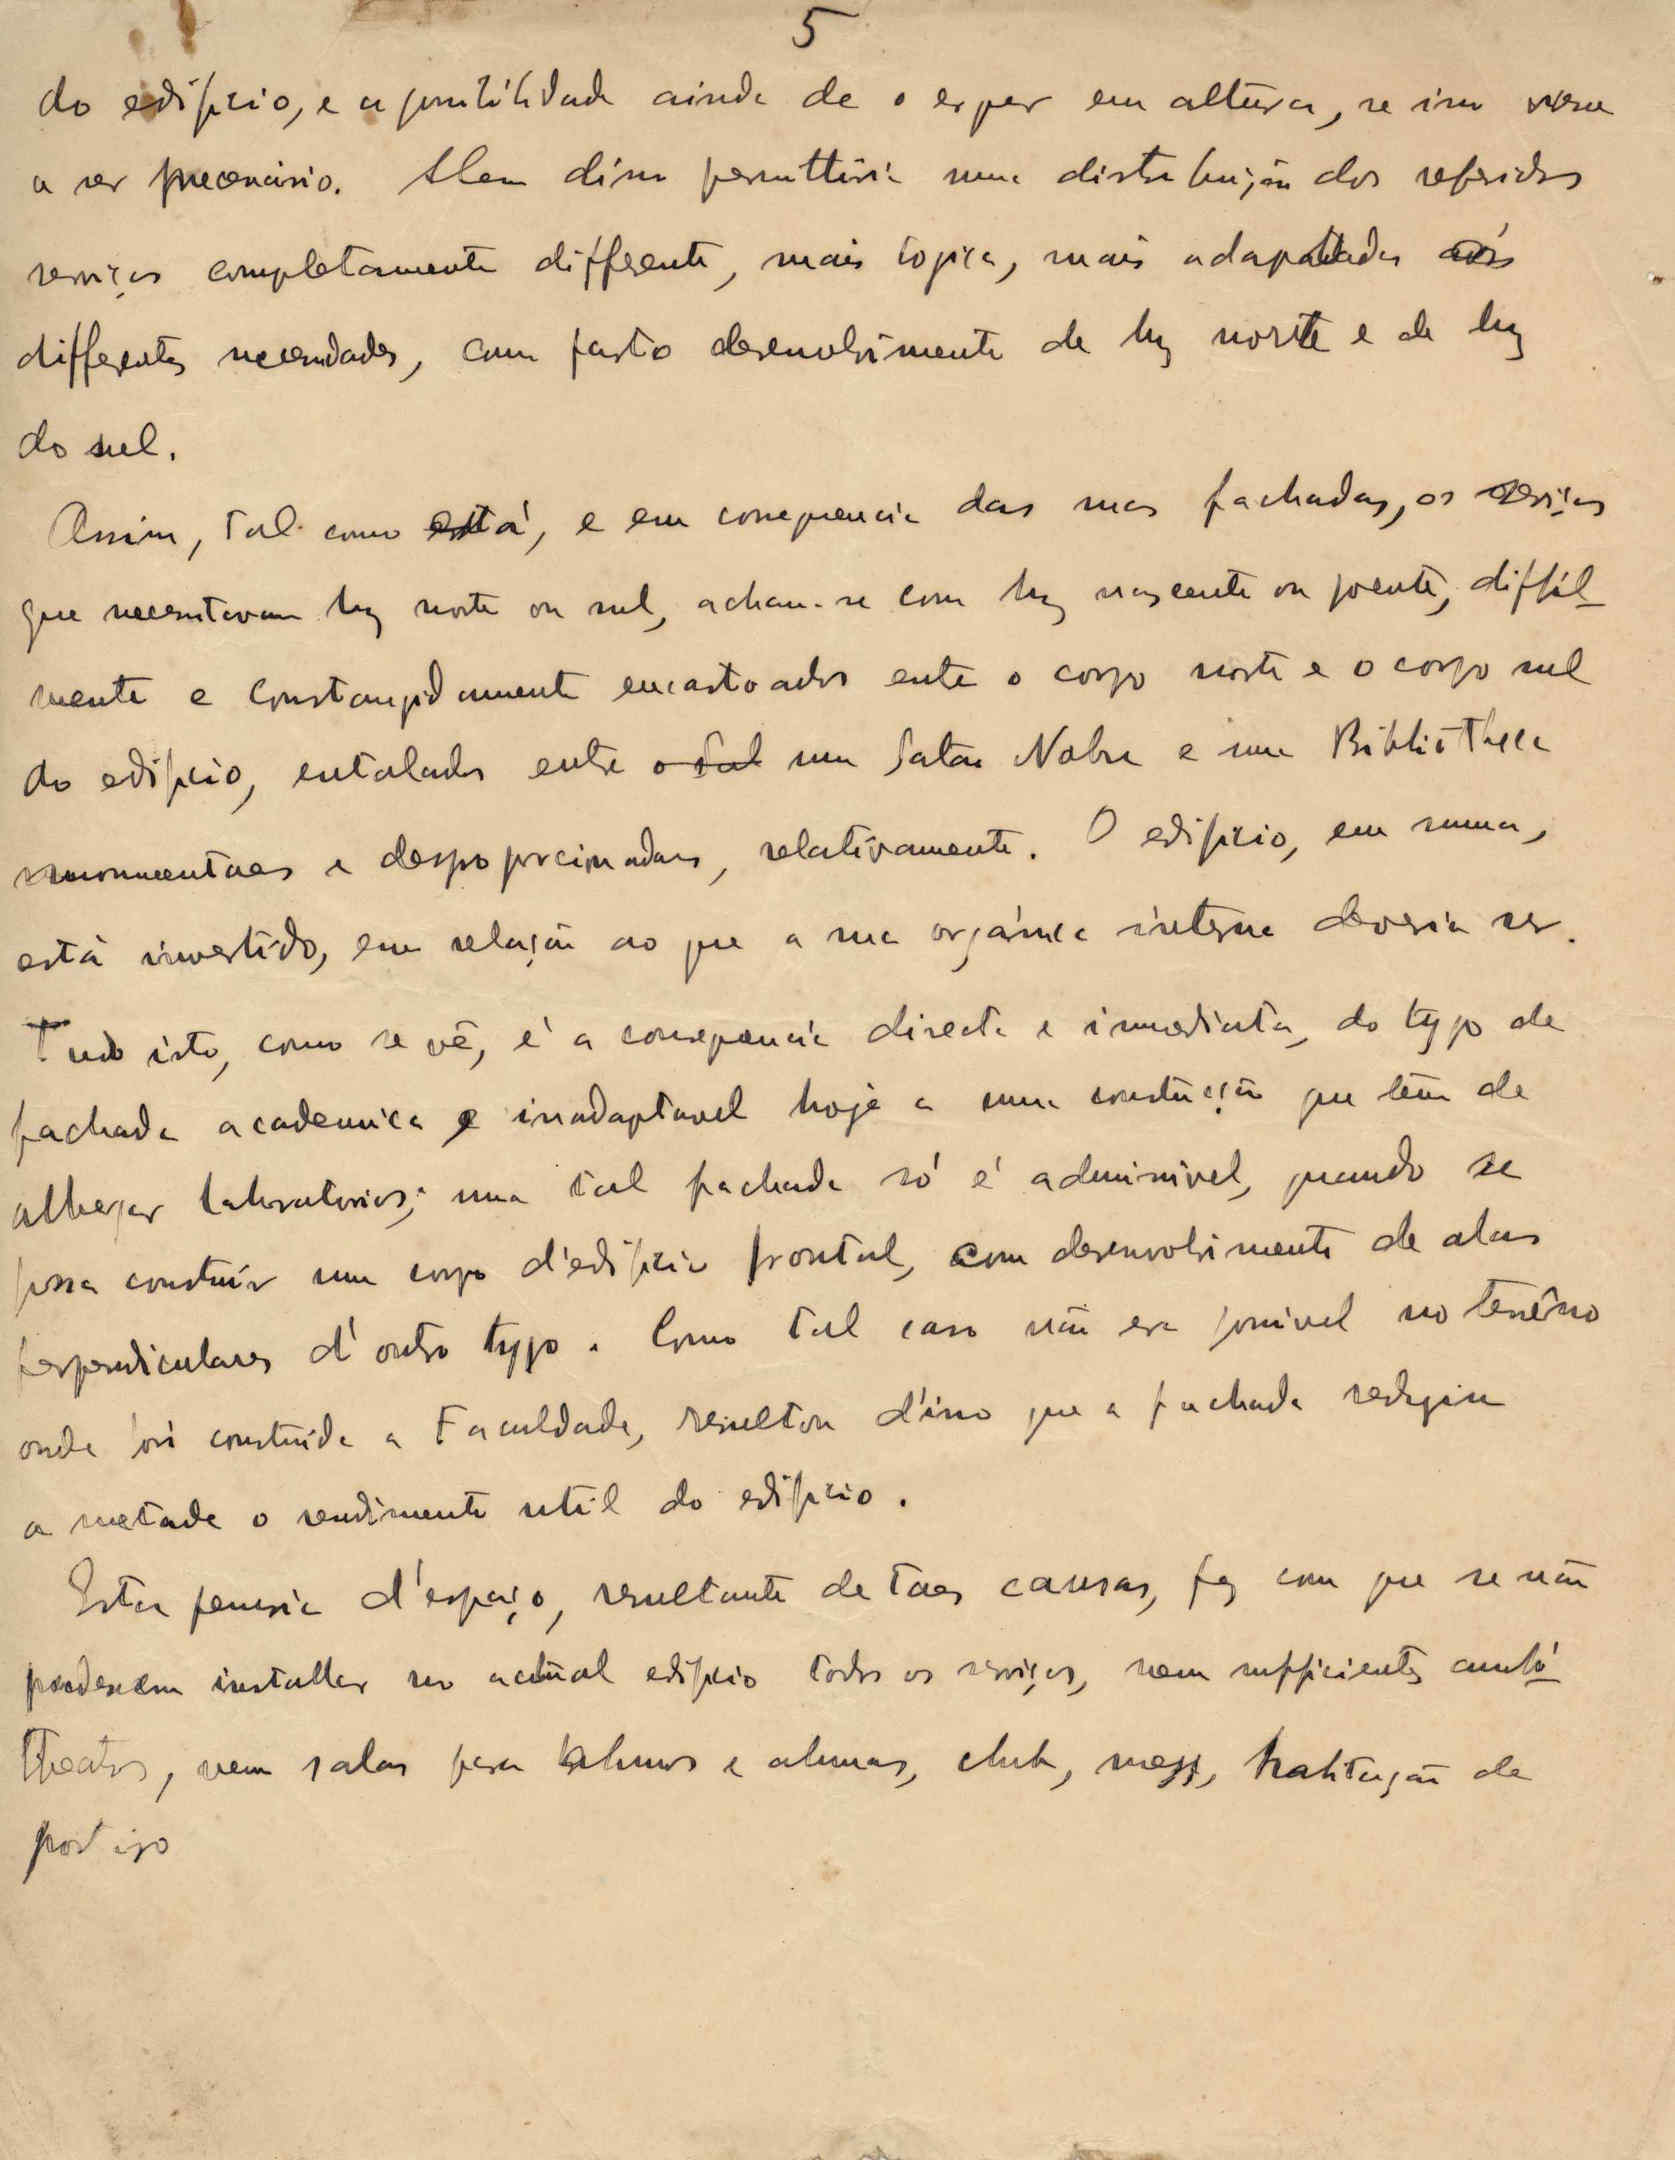 5
do edificio, e a possibilidade ainda de o erguer em altura, se isso viesse
a ser necessario. Alem disso permittiria uma distribuição dos referidos
serviços completamente differente, mais logica, mais adaptada ás
differentes necessidades, com farto desenvolvimento de luz norte e de luz
do sul.
Assim, tal como está, e em consequencia das suas fachadas, os serviços
que necessitavam luz norte ou sul, acham-se com luz nascente ou poente, difficil-
mente e constrangidamente encastoados entre o corpo norte e o corpo sul
do edificio, entalados entre o Sal um Salão Nobre e uma Bibliotheca
monumentaes e desproporcionadas, relativamente. O edificio, em summa,
está invertido, em relação ao que a sua orgánica interna deveria ser.
Tudo isto, como se vê, é a consequencia directa e immediata, do typo de
fachada academica e inadaptavel hoje a uma construcção que tem de
albergar laboratorios; uma tal fachada só é admissivel, quando se
possa construir um corpo d'edificio frontal, com desenvolvimento de alas
perpendiculares d'outro typo. Como tal caso não era possivel no terrêno
onde foi construida a Faculdade, resultou d'isso que a fachada reduziu
a metade o rendimento util do edificio.
Esta penuria d'espaço, resultante de taes causas, fez com que se não
podessem installar no actual edificio todos os serviços, nem sufficientes amfi-
theatros, nem salas para alumnos e alumnas, club, mess, habitação de